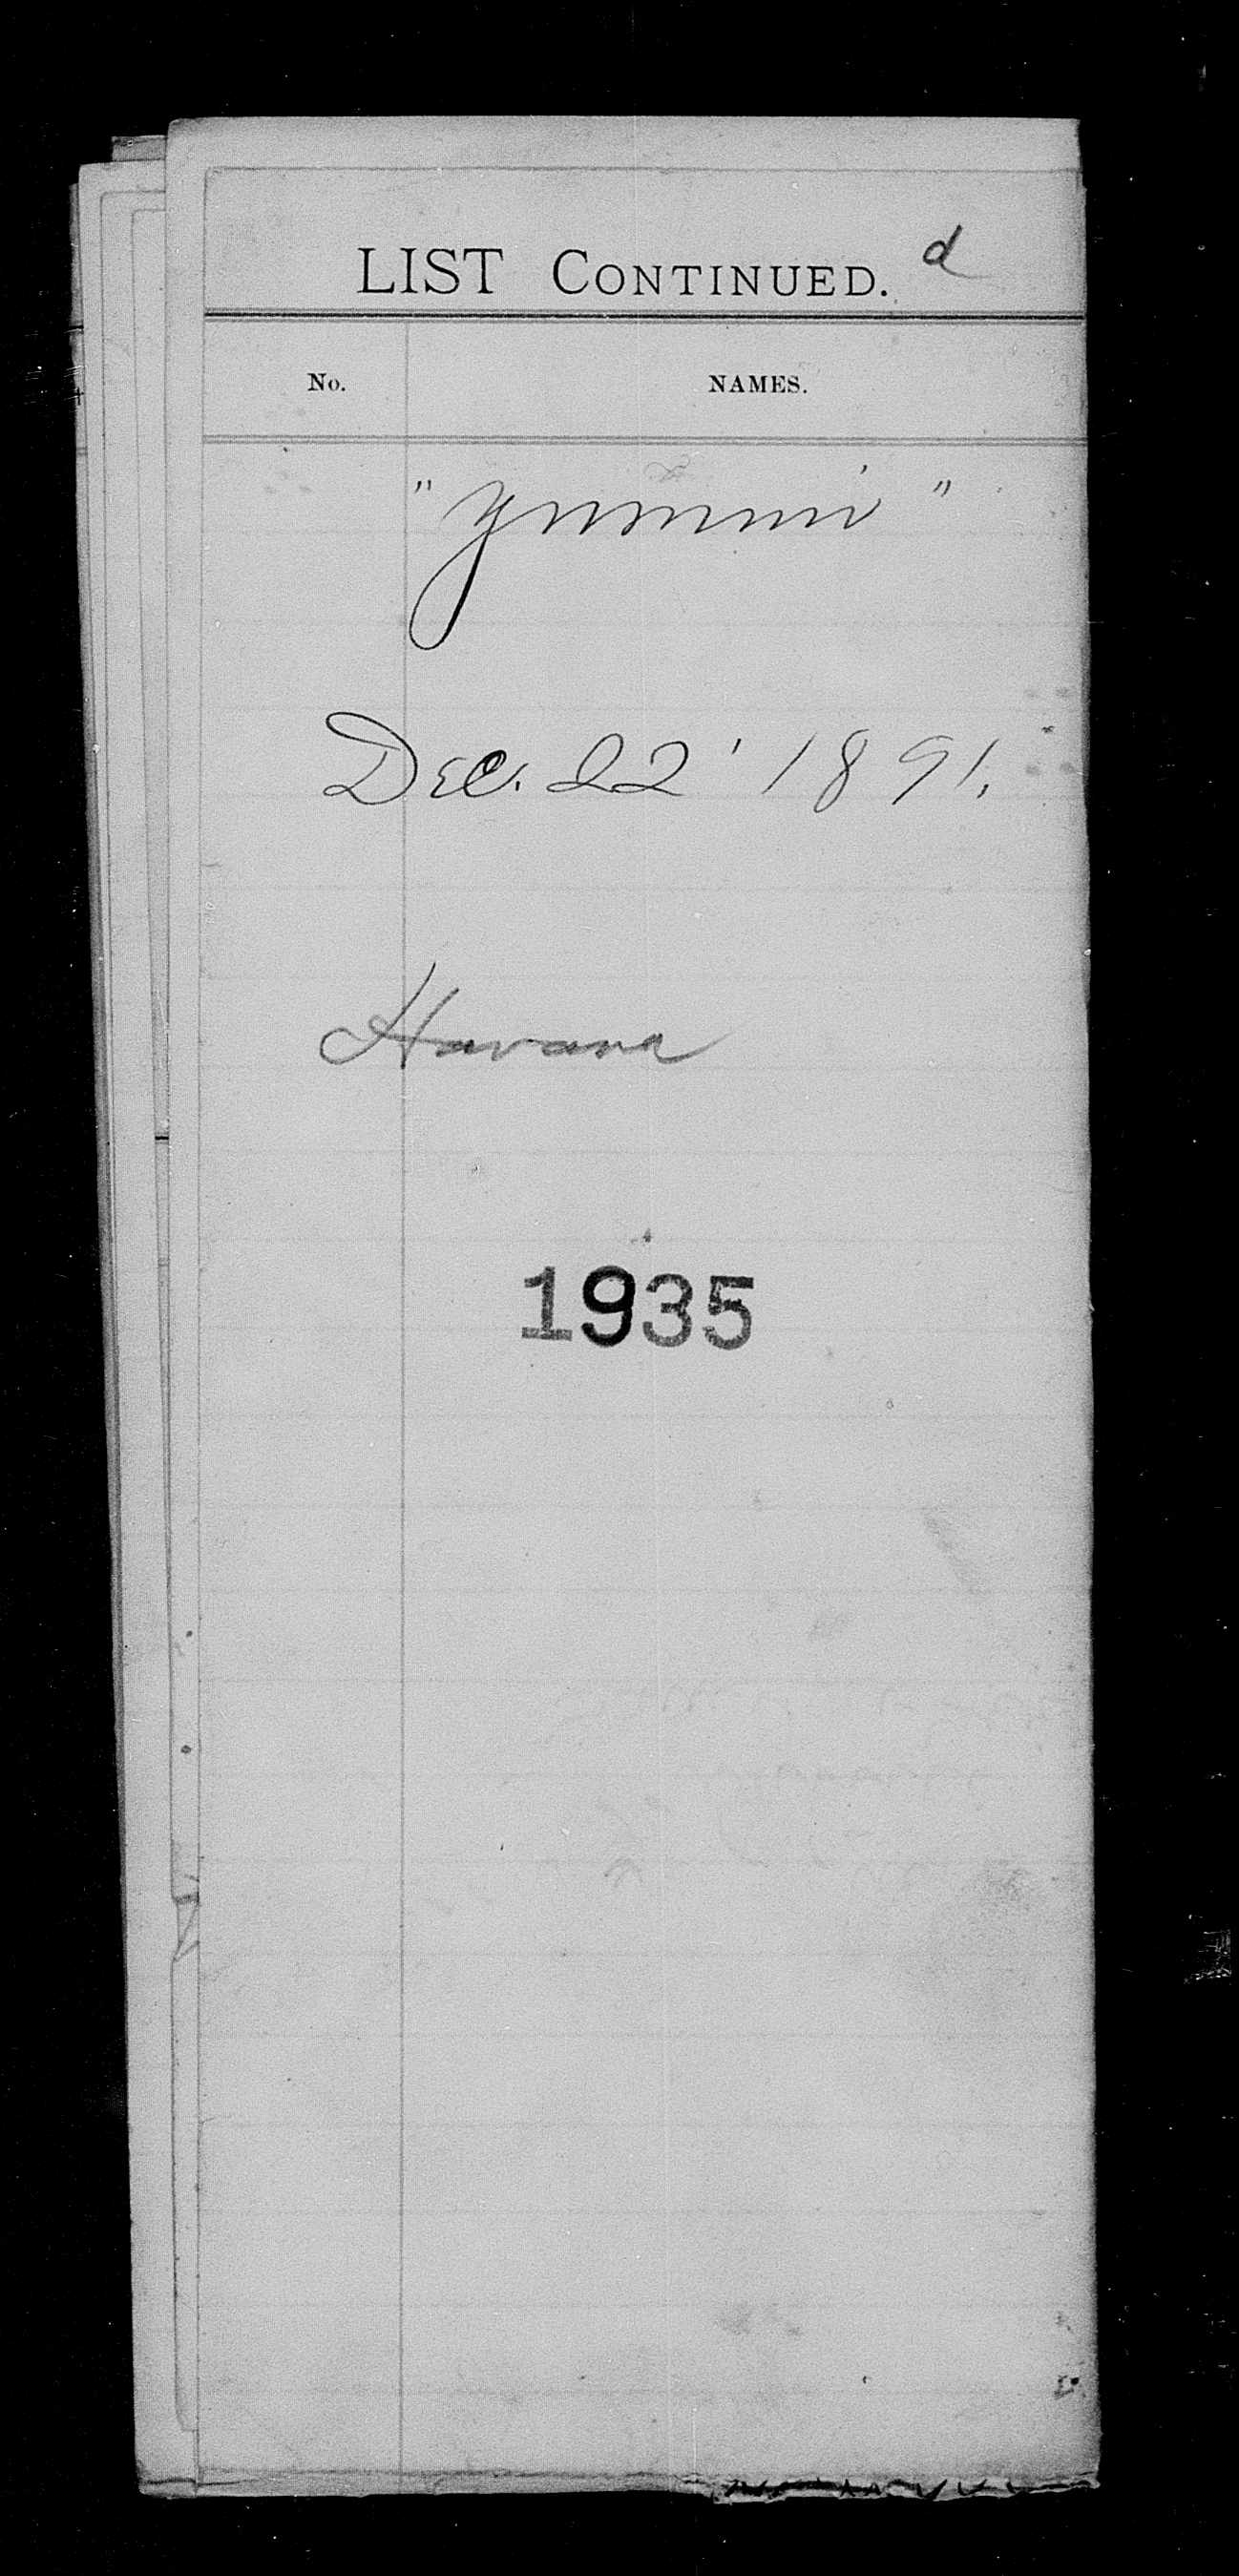 LIST CONTINUED. d
No. NAMES.
"Yumuri"
Dec. 22' 1891.
Havana
1935